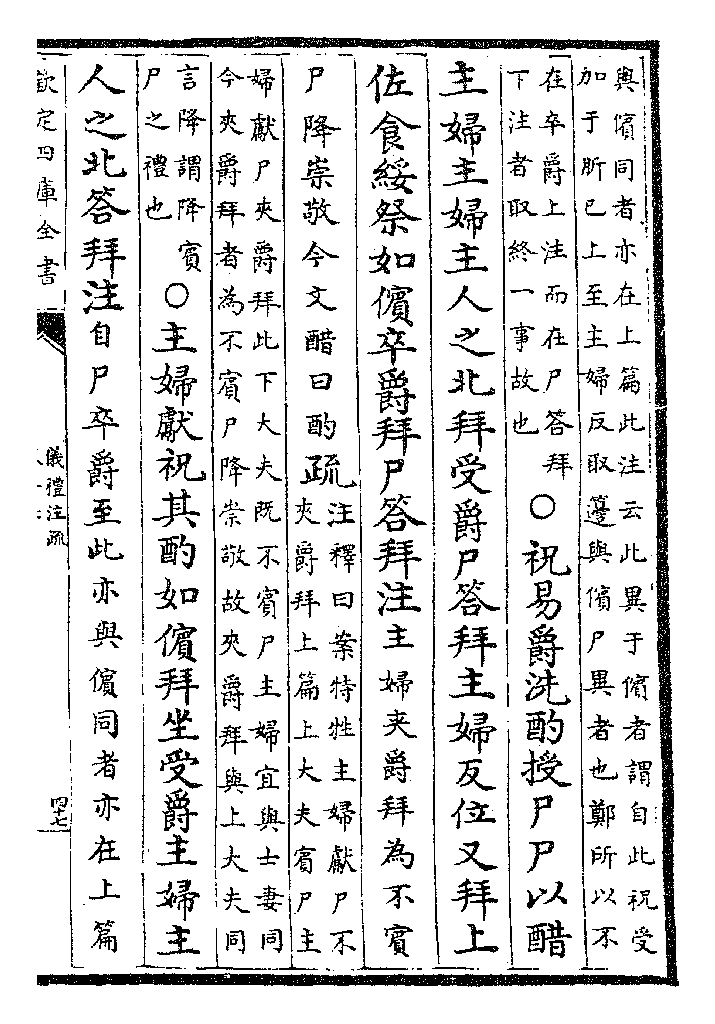 與儐同者亦在上篇此注云此異于儐者謂自此祝受
加于肵已上至主婦反取籩與儐尸異者也鄭所以不
在卒爵上注而在尸答拜
下注者取終一事故也
○祝易爵洗酌授尸尸以醋
主婦主婦主人之北拜受爵尸答拜主婦反位又拜上
佐食綏祭如儐卒爵拜尸答拜注主婦夾爵拜為不賓
尸降崇敬今文醋曰酌疏
注釋曰案特牲主婦獻尸不
夾爵拜上篇上大夫賓尸主
婦獻尸夾爵拜此下大夫既不賓尸主婦宜與士妻同
今夾爵拜者為不賓尸降崇敬故夾爵拜與上大夫同
言降謂降賓
尸之禮也
○主婦獻祝其酌如儐拜坐受爵主婦主
人之北答拜注自尸卒爵至此亦與儐同者亦在上篇
欽定四庫全書
儀禮注疏
四十七